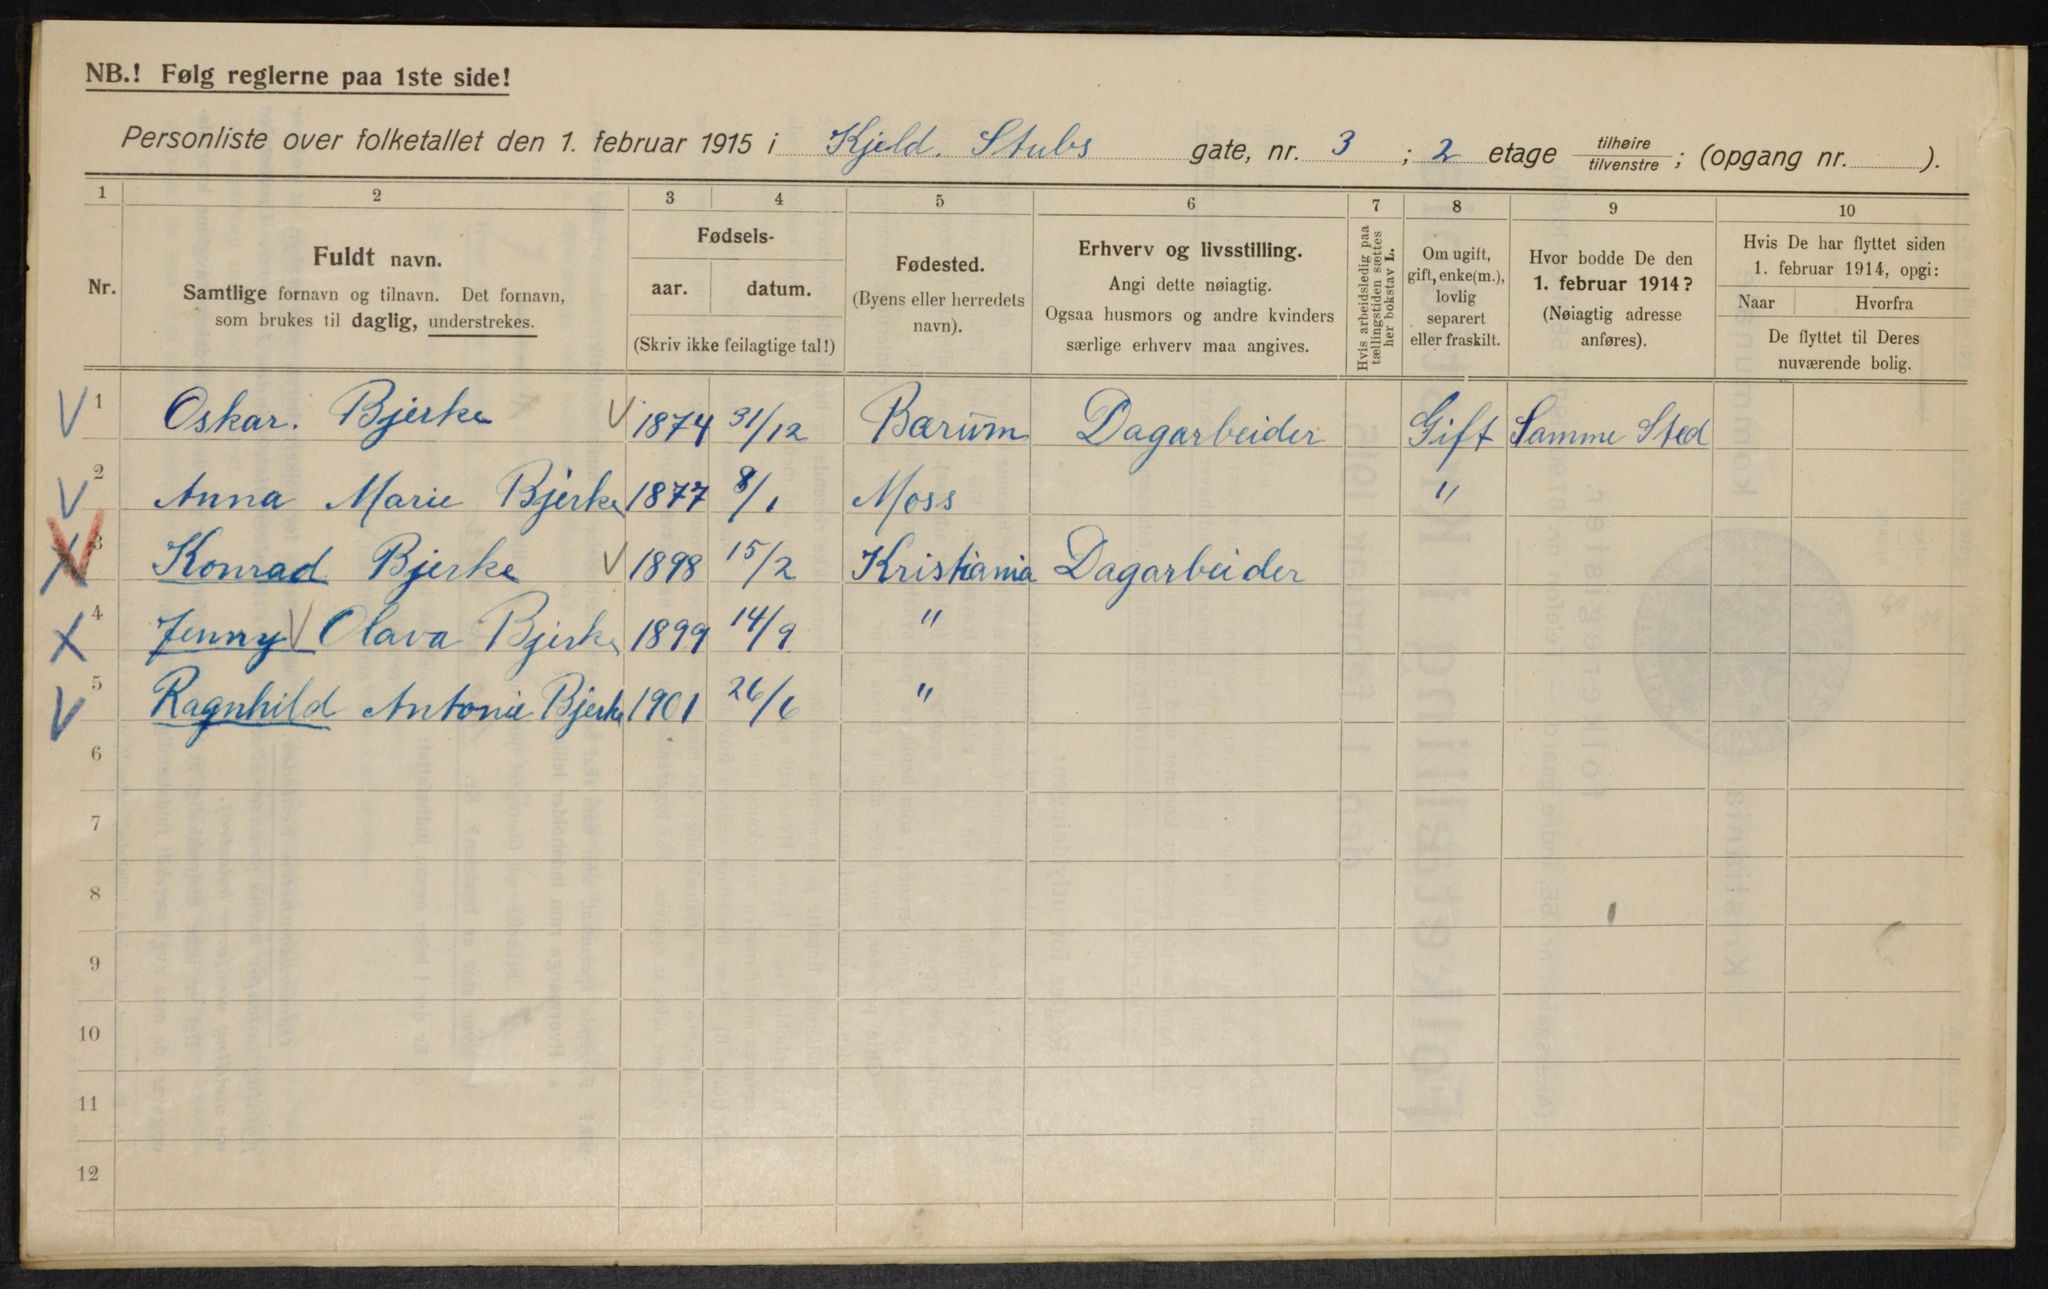 NB.! Følg reglerne paa 1ste side!
Personliste over folketallet den 1. februar 1915 i Kjeld. Stubs gate, nr. 3 ; 2 etage tilhøire / tilvenstre ; (opgang nr. ).
1 2 3 4 5 6 7 8 9 10
Nr.
Fuldt navn.
Samtlige fornavn og tilnavn. Det fornavn,
som brukes til daglig, understrekes.
Fødsels-
aar. datum.
(Skriv ikke feilagtige tal!)
Fødested.
(Byens eller herredets
navn).
Erhverv og livsstilling.
Angi dette nøiagtig.
Ogsaa husmors og andre kvinders
særlige erhverv maa angives.
Hvis arbeidsledig paa
tællingstiden sættes
her bokstav L.
Om ugift,
gift, enke(m.),
lovlig
separert
eller fraskilt.
Hvor bodde De den
1. februar 1914?
(Nøiagtig adresse
anføres).
Hvis De har flyttet siden
1. februar 1914, opgi:
Naar Hvorfra
De flyttet til Deres
nuværende bolig.
V 1 Oskar. Bjerke V 1874 31/12 Bærum Dagarbeider Gift Samme Sted
V 2 Anna Marie Bjerke 1877 8/1 Moss "
X V 3 Konrad Bjerke V 1898 15/2 Kristiania Dagarbeider
X 4 Jenny V Olava Bjerke 1899 14/9 "
V 5 Ragnhild Antonie Bjerke 1901 26/6 "
6
7
8
9
10
11
12